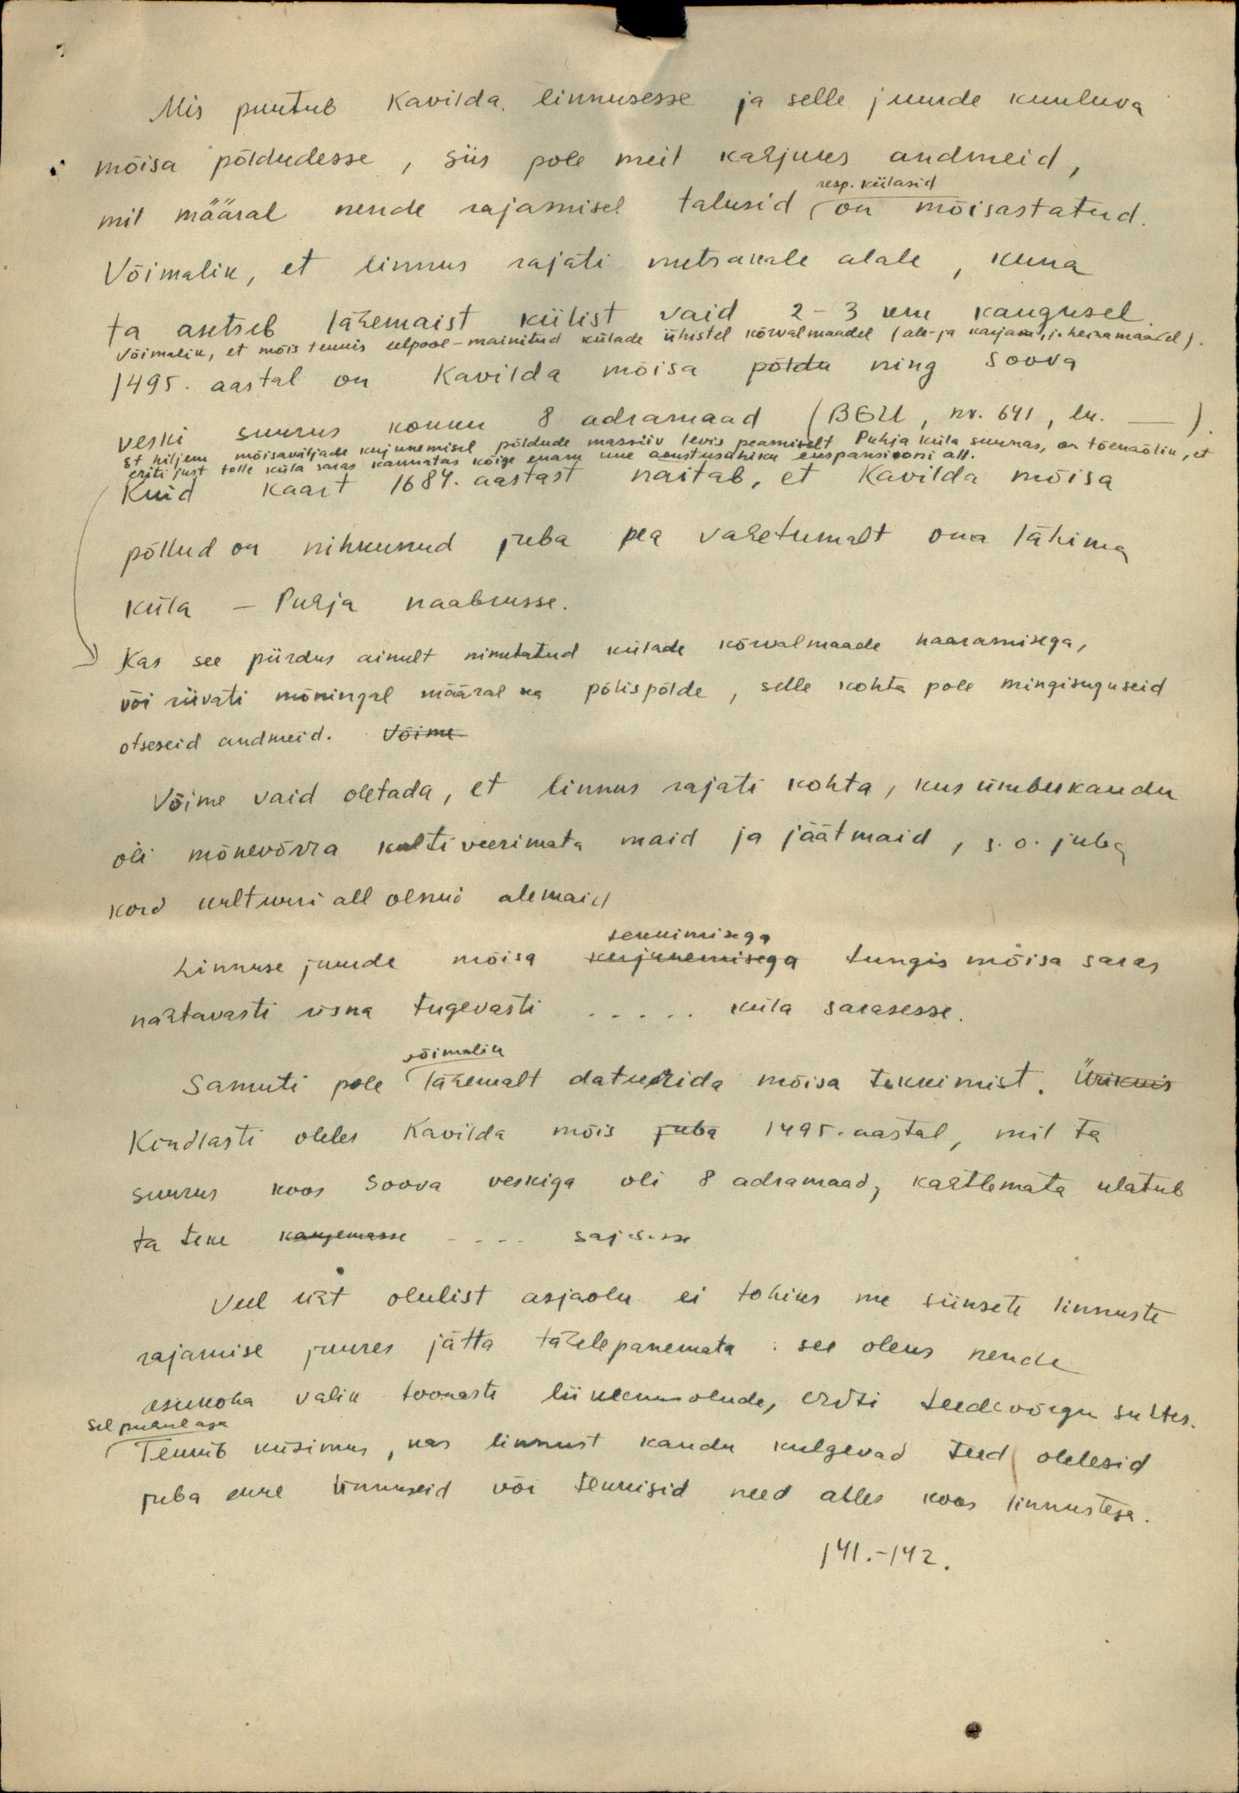 Mis puutub Kavilda linnusesse ja selle juurde kuuluva
mõisa põldudesse, siis pole meil kahjuks andmeid,
resp. külasid
mil määral nende rajamisel talusid on mõisastatud.
Võimalik, et linnus rajati metsakale alale, kuna
ta asetseb lähemaist külist vaid 2-3 km kaugusel.
Võimalik, et mõis tekkis eelpool-mainitud külade ühistel kõrvalmaadel (ale- ja karjam., heinamaadel).
1495. aastal on Kavilda mõisa põldu ning Soova
veski suurus kokku 8 adramaad (BGU, nr. 641, lk. __).
St hiljem mõisaviljade kujunemisel põldude massiiv levis peamiselt Puhja küla suunas, on tõenäolik, et
eriti just tolle küla saras kannatas kõige enam uue asustusühiku ekspansiooni all.
Kuid kaart 1684. aastast näitab, et Kavilda mõisa
põllud on nihkunud juba pea vahetumalt oma lähima
küla – Puhja naabrusse.
Kas see piirdus ainult nimetatud külade kõrvalmaade haaramisega,
või riivati mõningal määral ka põlispõlde, selle kohta pole mingisuguseid
otseseid andmeid. Võime
Võime vaid oletada, et linnus rajati kohta, kus ümberkaudu
oli mõnevõrra kultiveerimata maid ja jäätmaid, s.o. juba
kord kultuuri all olnud alemaid
tekkimisega
Linnuse juurde mõisa kujunemisega tungis mõisa saras
nähtavasti üsna tugevasti ..... küla sarasesse.
võimalik
Samuti pole lähemalt dateerida mõisa tekkimist. Ükskuis
Kindlasti oleles Kavilda mõis juba 1495. aastal, mil ta
suurus koos Soova veskiga oli 8 adramaad, kahtlemata ulatub
ta teke kaugemasse .... sajasse
Veel üht olulist asjaolu ei tohiks me siinsete linnuste
rajamise juures jätta tähelepanemata: see oleks nende
asukoha valik toonaste liiklemisolude, eriti teedevõrgu suhtes.
Sel puhul aga
Tekkib küsimus, kas linnust kaudu kulgevad teed olelesid
juba enne linnuseid või tekkisid need alles koos linnustega.
141.-142.